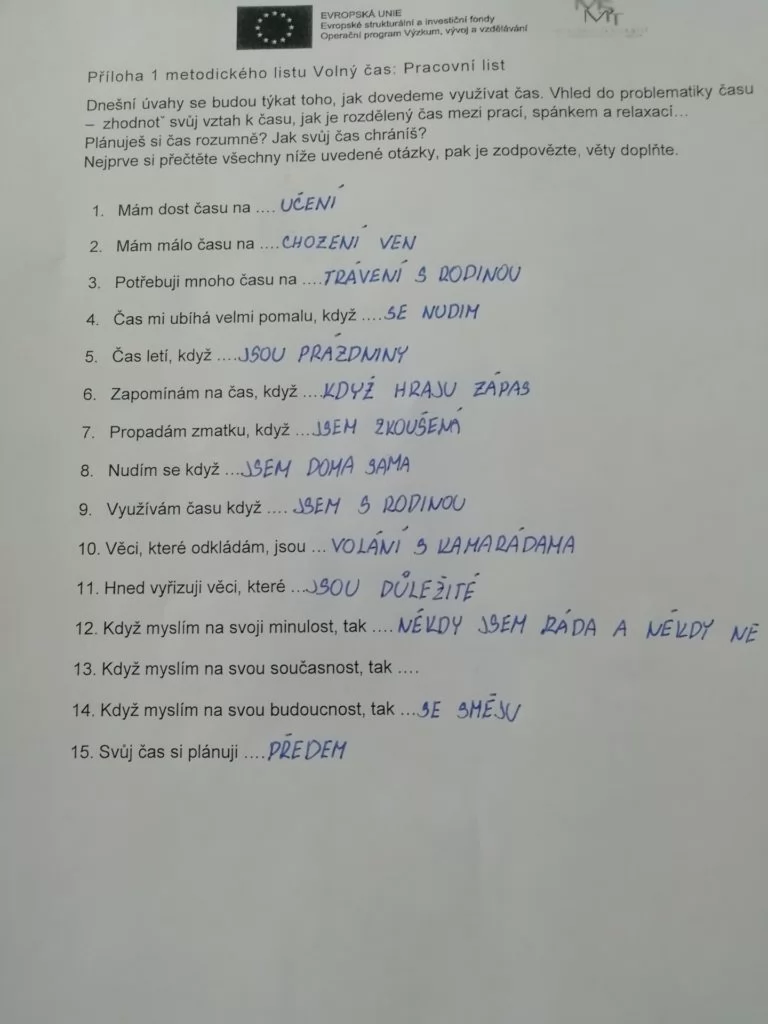 EVROPSKÁ UNIE
Evropské strukturální a investiční fondy
Operační program Výzkum, vývoj a vzdělávání
Příloha 1 metodického listu Volný čas: Pracovní list
Dnešní úvahy se budou týkat toho, jak dovedeme využívat čas. Vhled do problematiky času
– zhodnoť svůj vztah k času, jak je rozdělený čas mezi prací, spánkem a relaxací…
Plánuješ si čas rozumně? Jak svůj čas chráníš?
Nejprve si přečtěte všechny níže uvedené otázky, pak je zodpovězte, věty doplňte.
1. Mám dost času na .... UČENÍ
2. Mám málo času na ....CHOZENÍ VEN
3. Potřebuji mnoho času na ....TRÁVENÍ S RODINOU
4. Čas mi ubíhá velmi pomalu, když ....SE NUDIM
5. Čas letí, když ....JSOU PRÁZDNINY
6. Zapomínám na čas, když ....KDYŽ HRAJU ZÁPAS
7. Propadám zmatku, když ...JSEM ZKOUŠENÁ
8. Nudím se když ...JSEM DOMA SAMA
9. Využívám času když .... JSEM S RODINOU
10. Věci, které odkládám, jsou ... VOLÁNÍ S KAMARÁDAMA
11. Hned vyřizuji věci, které ...JSOU DŮLEŽITÉ
12. Když myslím na svoji minulost, tak .... NĚKDY JSEM RÁDA A NĚKDY NE
13. Když myslím na svou současnost, tak ....
14. Když myslím na svou budoucnost, tak ...SE SMĚJU
15. Svůj čas si plánuji ....PŘEDEM